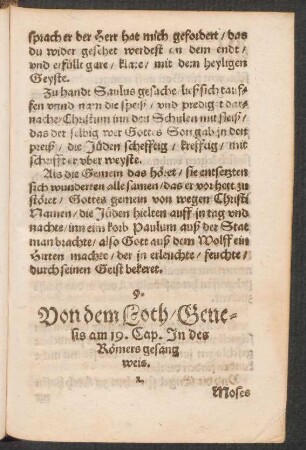 sprach er der Herr hat mich gefordert / das
du wider gesehet werdest an dem endt /
vnd erfüllt gare / klare / mit dem heyligen
Geyste.
Zu handt Saulus gesache / ließ sich tauf-
fen vnnd nam die speiß / vnd prediget dar-
nache / Christum inn den Schulen mit fleiß /
das der selbig wer Gottes Son gab jn den
preiß / die Jüden schefftig / krefftig / mit
schrifft er vber weyste.
Als die Gemein das höret / sie entsetzten
sich wunderten alle samen / das er vor heit zu
störet / Gottes gemein von wegen Christi
Namen / die Jüden hielten auff jn tag vnd
nachte / inn eim korb Paulum auß der Stat
man brachte / also Gott auß dem Wolff ein
Hirten machte / der jn erleuchte / feuchte /
durch seinen Geist bekeret.
9.
Von dem Loth / Gene-
sis am 19. Cap. In des
Römers gesang
weis.
1.
Moses